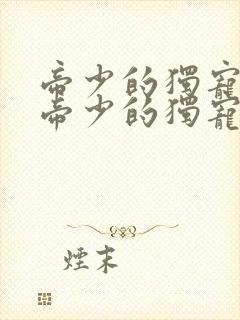 帝少的獨寵
帝少的獨寵
煙末